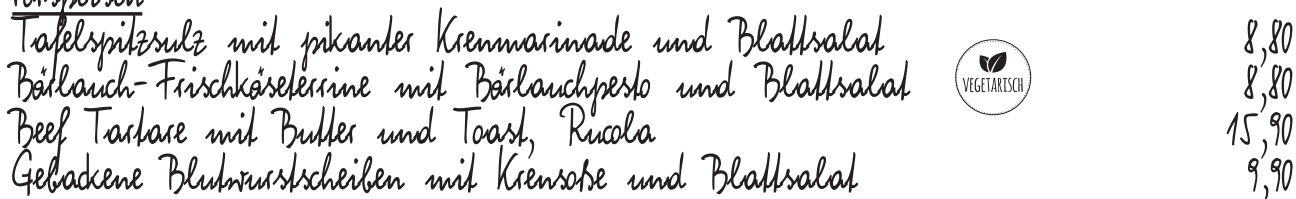 Vorspeisen
Tafelspitzsulz mit pikanter Krenmarinade und Blattsalat 8,80
Bärlauch-Frischkäseterrine mit Bärlauchpesto und Blattsalat VEGETARISCH 8,80
Beef Tartare mit Butter und Toast, Rucola 15,90
Gebackene Blutwurstscheiben mit Krensoße und Blattsalat 9,90